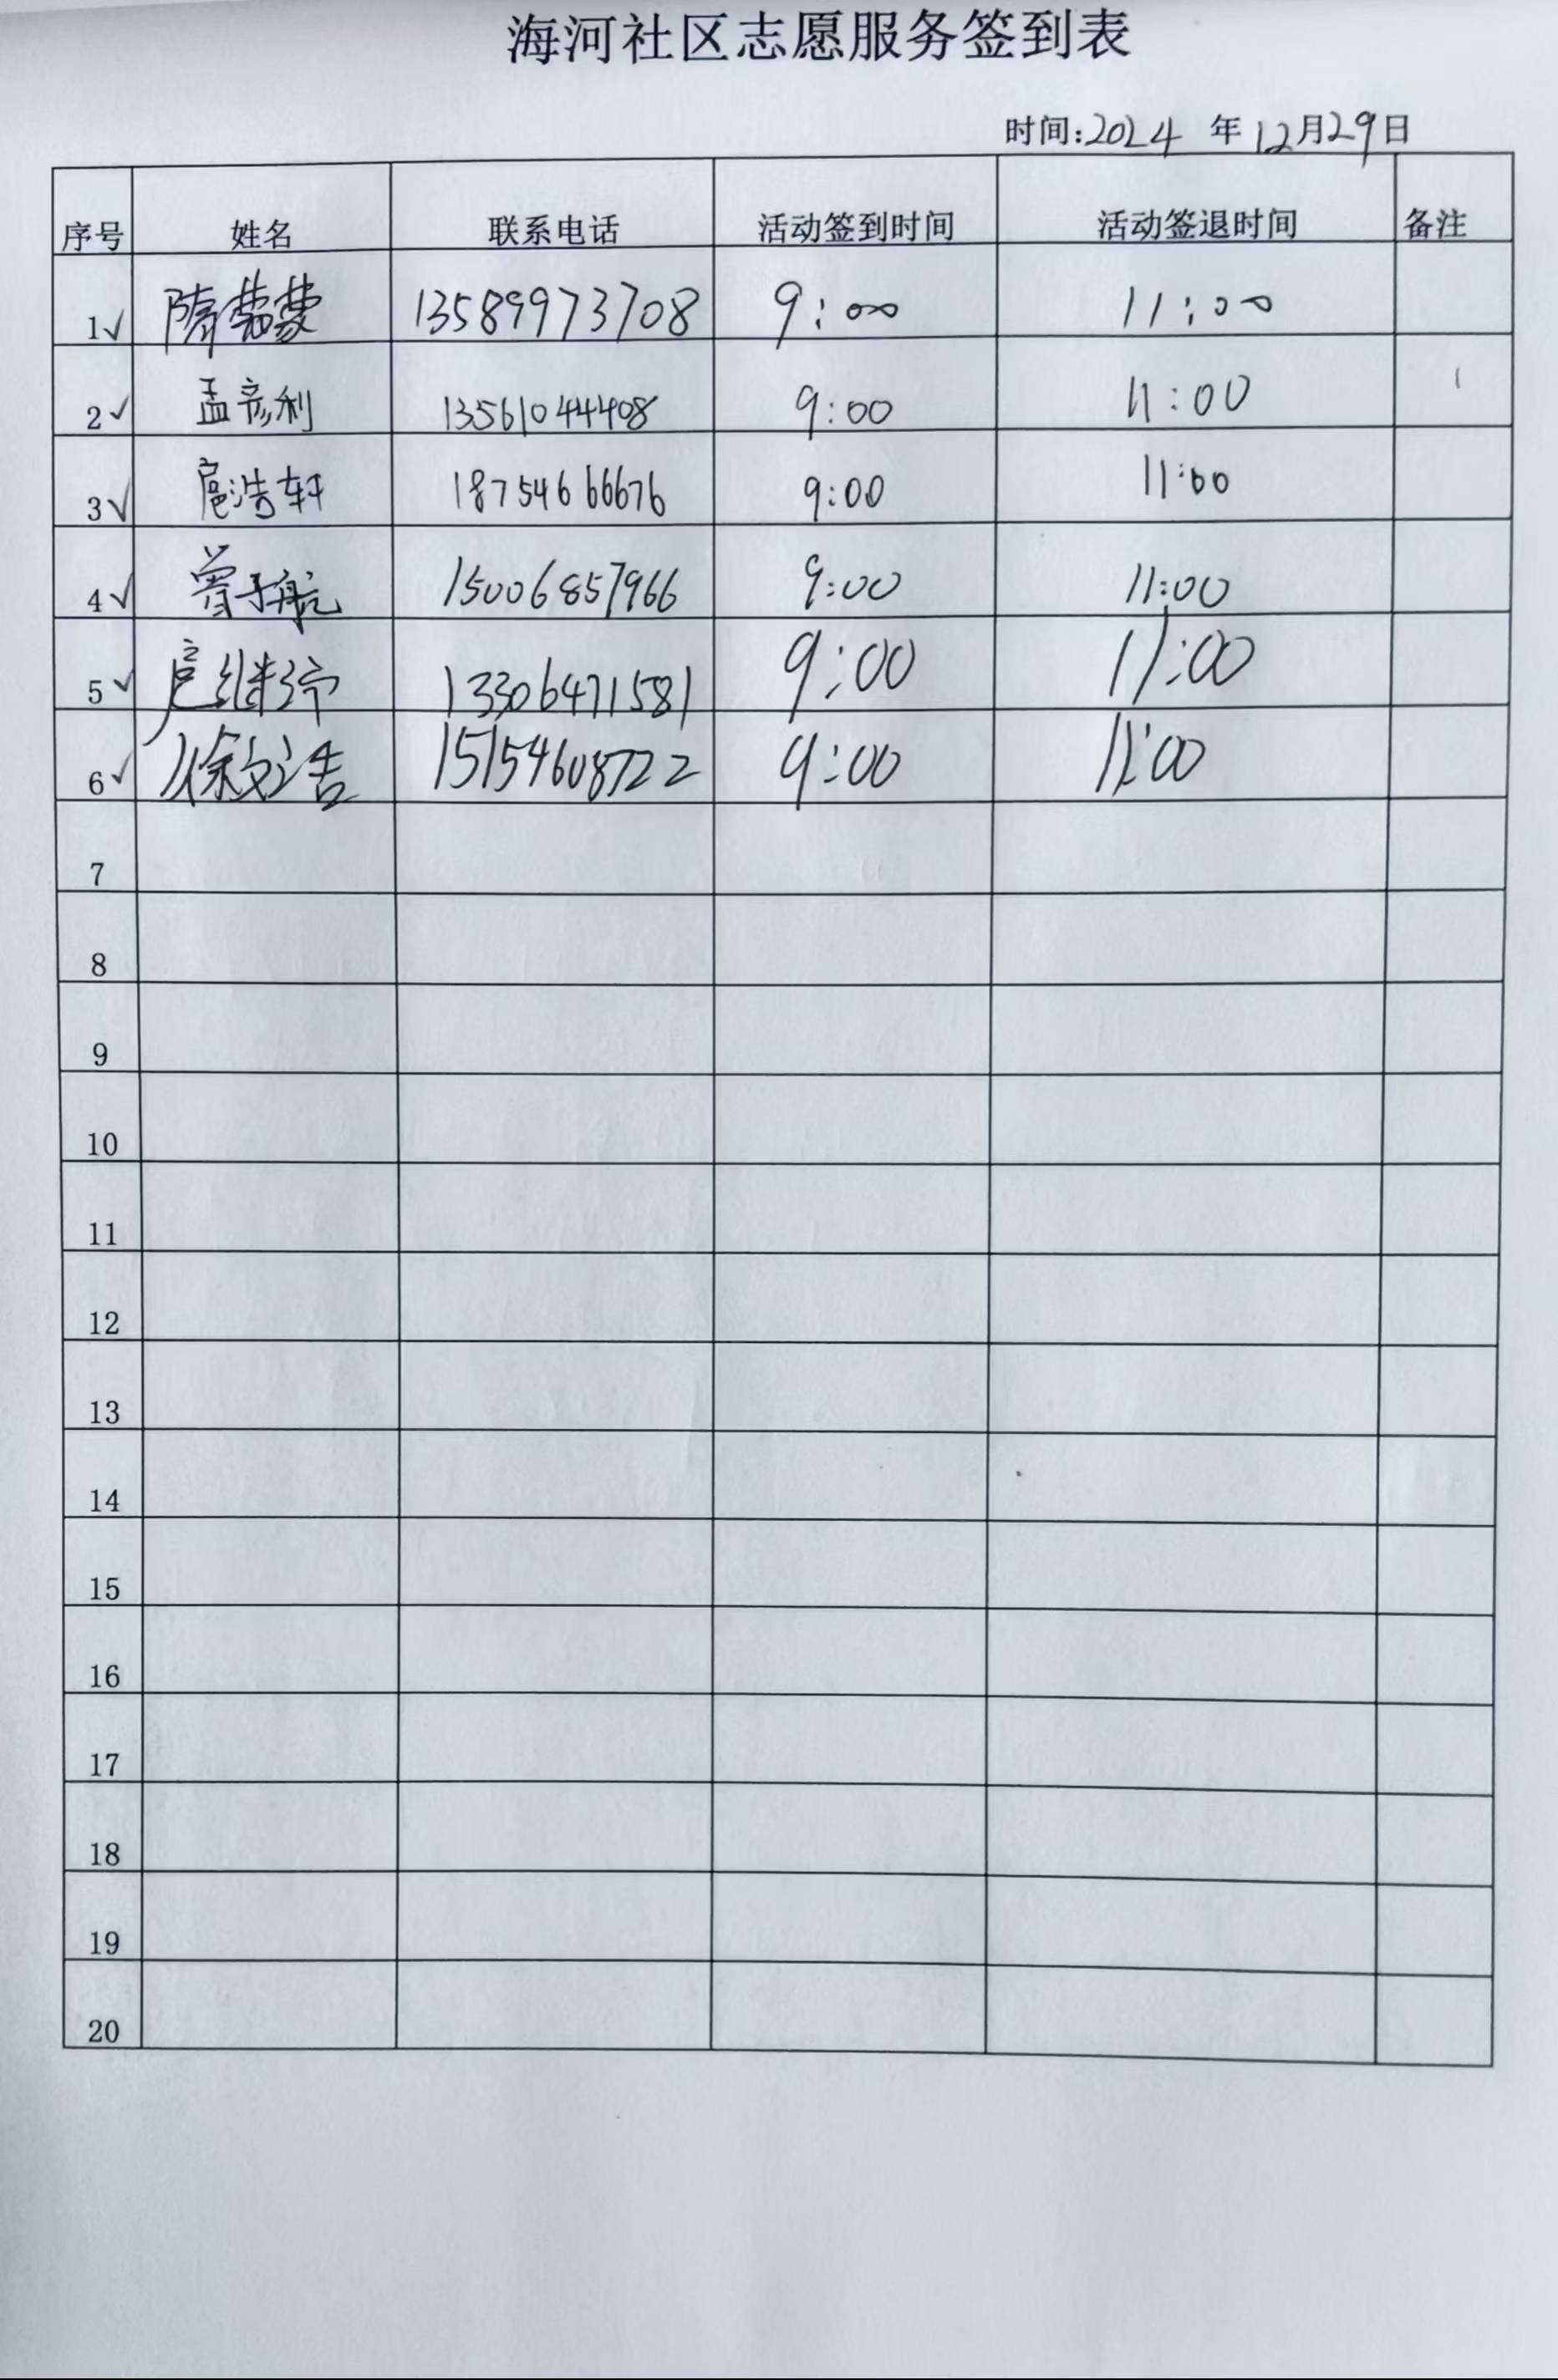 海河社区志愿服务签到表
时间:2024 年12月29日
序号 姓名 联系电话 活动签到时间 活动签退时间 备注
1✓ 隋 13589973708 9:00 11:00
2✓ 孟彦利 13561044408 9:00 11:00
3✓ 扈浩轩 18754666676 9:00 11:00
4✓ 曾子航 15006857966 9:00 11:00
5✓ 扈继 13306471581 9:00 11:00
6✓ 徐文浩 15154608722 9:00 11:00
7
8
9
10
11
12
13
14
15
16
17
18
19
20